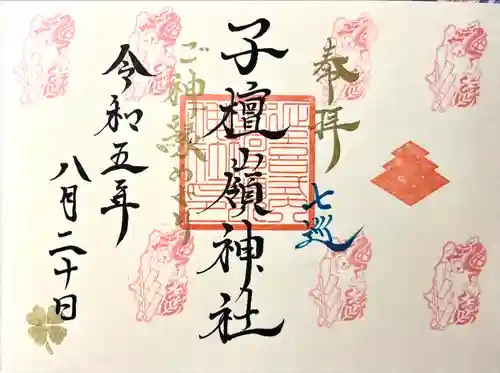 奉拝
七巡
子檀嶺神社
ご神縁めぐり
令和五年
八月二十日